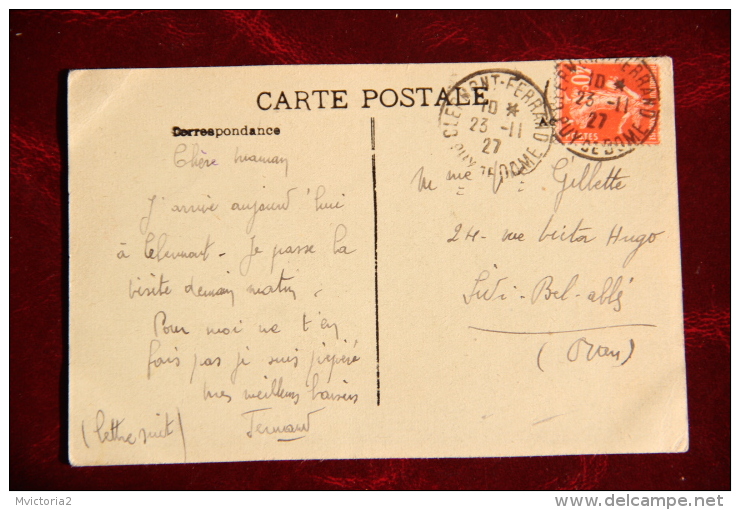 CARTE POSTALE
Correspondance
Chère maman
J'arrive aujourd'hui
à Clermont. Je passe la
visite demain matin.
Pour moi ne t'en
fais pas je suis
mes meilleurs baisers
Fernand
(lettre suit)
CLERMONT-FERRAND
10 *
23 - 11
27
PUY-DE-DOME
CLERMONT-FERRAND
10 *
23 - 11
27
PUY-DE-DOME
10
POSTES
Mme Gillette
24 - rue Victor Hugo
Sidi-Bel-abbès
(Oran)
Mvictoria2
www.delcampe.net